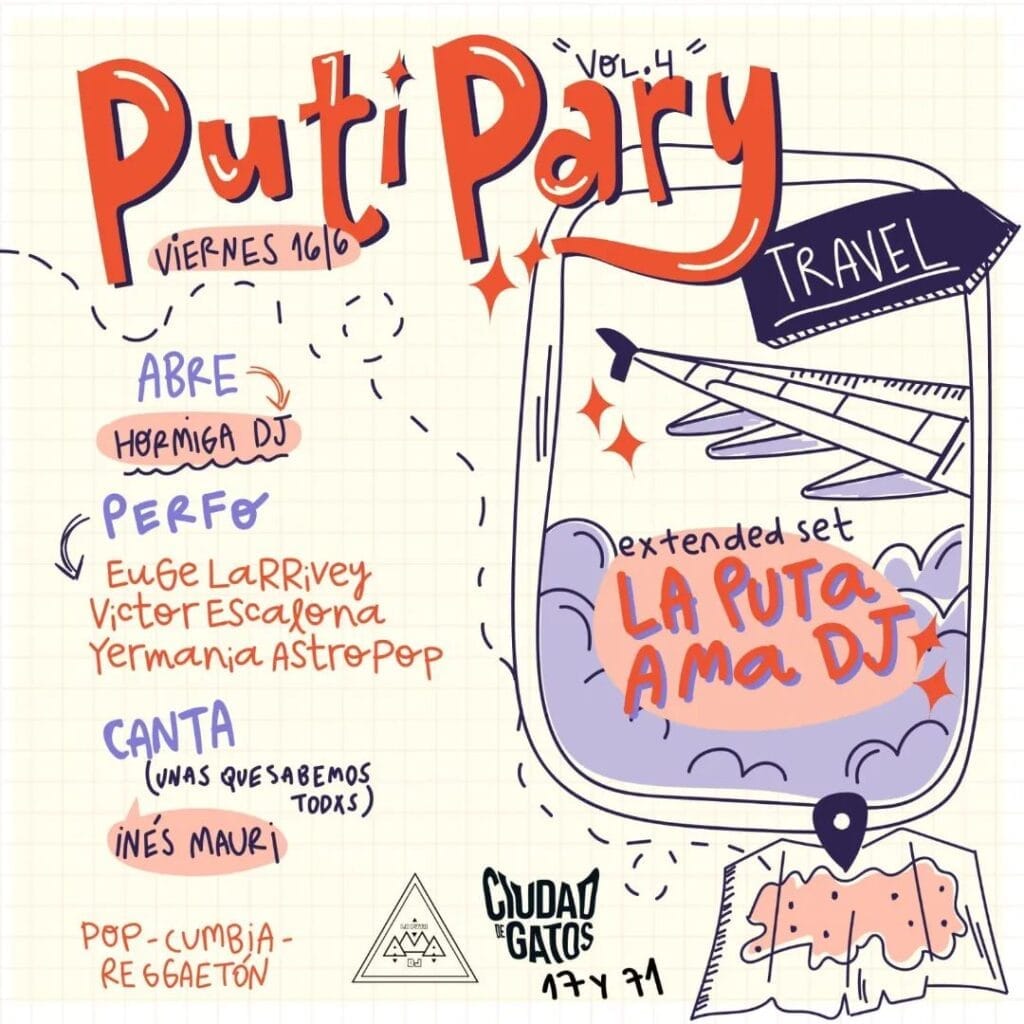 Puti Pary
"VOL.4"
VIERNES 16/6
TRAVEL
ABRE
HORMIGA DJ
PERFO
EUGE LARRIVEY
VICTOR ESCALONA
YERMANIA ASTROPOP
CANTA
(UNAS QUE SABEMOS
TODXS)
INÉS MAURI
POP-CUMBIA-
REGGAETÓN
extended set
LA PUTA
AMA DJ
DJ
CIUDAD
DE GATOS
17 Y 71